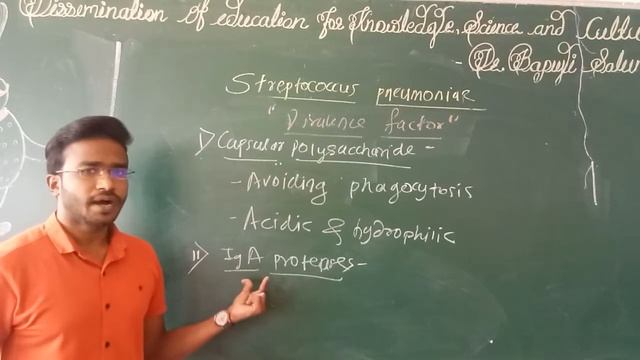 Dissemination of education for Knowledge, Science and Cultu
- Dr. Bapuji Salun
Streptococcus pneumoniae
"Virulence factor"
I) Capsular polysaccharide -
- Avoiding phagocytosis
- Acidic & hydrophilic
II) IgA proteases -